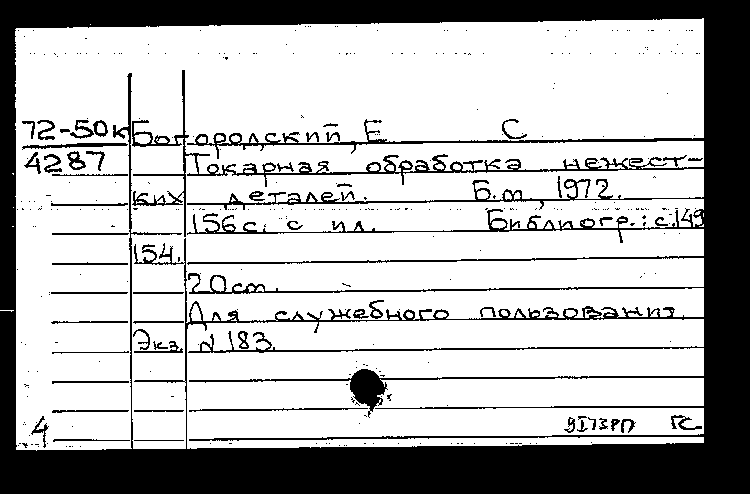 72-50к Богородский, Е С
4287 Токарная обработка нежест-
ких деталей. Б.м, 1972.
156с. с ил. Библиогр.: с.149
154.
20см.
Для служебного пользования.
Экз. N 183.
4 9I73РП ГС